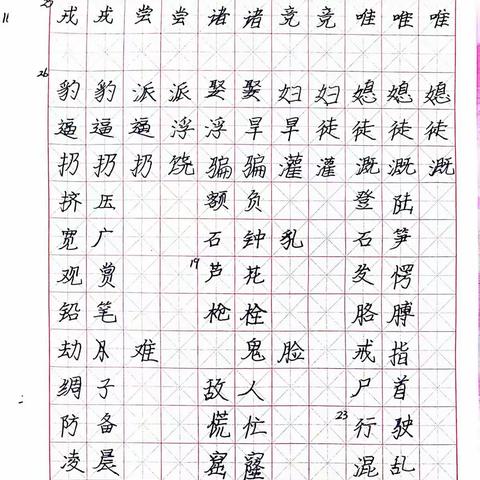 25 戎 戎 尝 尝 诸 诸 竞 竞 唯 唯 唯
26 豹 豹 派 派 娶 娶 妇 妇 媳 媳 媳
逼 逼 逼 浮 浮 旱 旱 徒 徒 徒 徒
扔 扔 扔 饶 骗 骗 灌 灌 溉 溉 溉
挤 压 额 负 登 陆
宽 广 石 钟 乳 石 笋
观 赏 19 芦 花 发 愣
铅 笔 枪 栓 胳 膊
劫 难 鬼 脸 戒 指
绸 子 故 人 尸 首
防 备 慌 忙 23 行 驶
凌 晨 窟 窿 混 乱